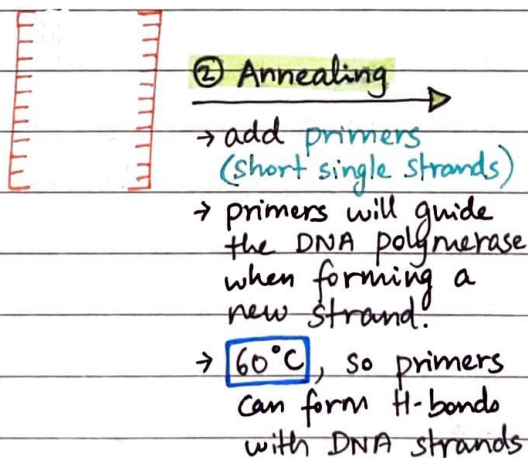 ② Annealing
→ add primers
(short single strands)
→ primers will guide
the DNA polymerase
when forming a
new strand.
→ 60°C, so primers
can form H-bonds
with DNA strands